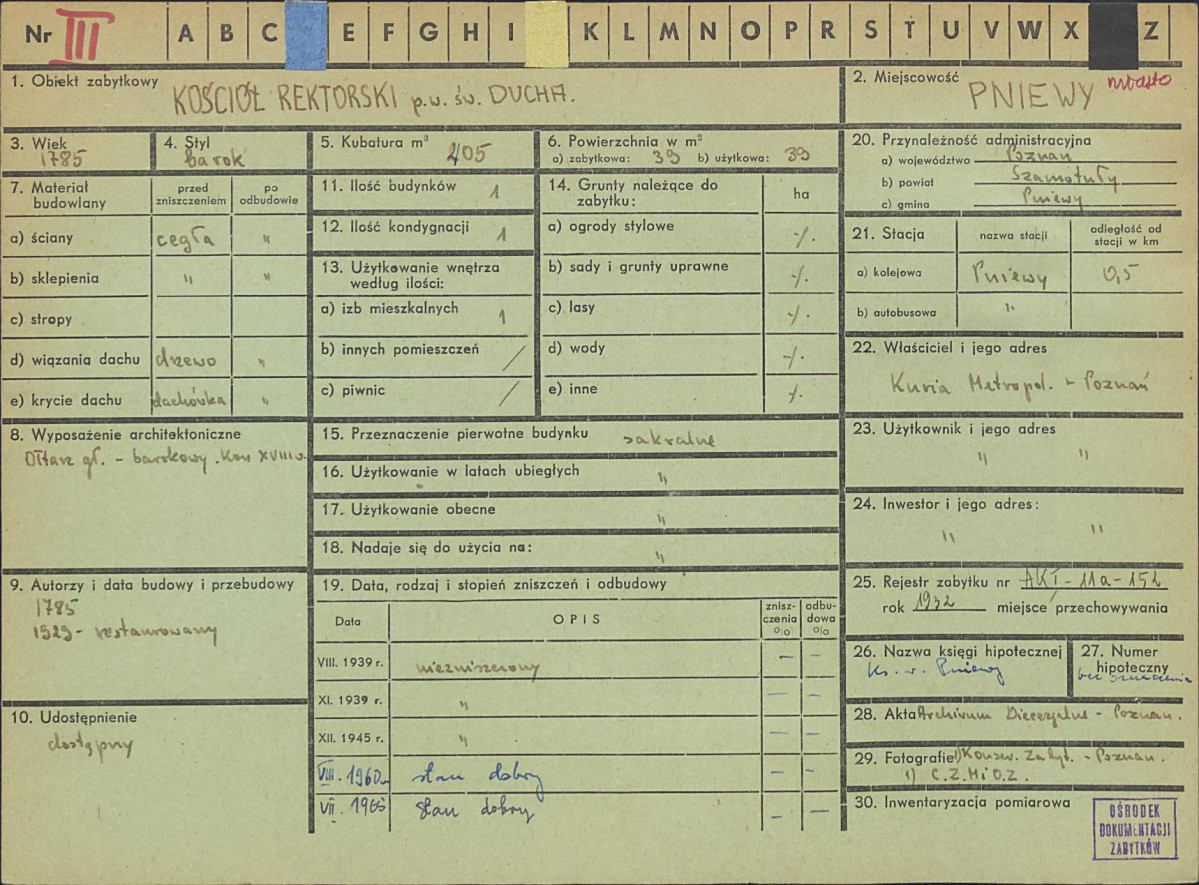 Nr III A B C E F G H I K L M N O P R S T U V W X Z
1. Obiekt zabytkowy
KOŚCIÓŁ REKTORSKI p.w. św. DUCHA.
2. Miejscowość
PNIEWY miasto
3. Wiek
1785
4. Styl
barok
5. Kubatura m³
405
6. Powierzchnia w m²
a) zabytkowa: 39 b) użytkowa: 39
7. Materiał budowlany
przed zniszczeniem
po odbudowie
a) ściany cegła "
b) sklepienia " "
c) stropy
d) wiązania dachu drzewo "
e) krycie dachu dachówka "
8. Wyposażenie architektoniczne
Ołtarz gł. - barokowy. Kon XVIII w.
9. Autorzy i data budowy i przebudowy
1785
1929 - restaurowany
10. Udostępnienie
dostępny
11. Ilość budynków 1
12. Ilość kondygnacji 1
13. Użytkowanie wnętrza według ilości:
a) izb mieszkalnych 1
b) innych pomieszczeń /
c) piwnic /
14. Grunty należące do zabytku:
ha
a) ogrody stylowe -/.
b) sady i grunty uprawne -/.
c) lasy -/.
d) wody -/.
e) inne -/.
15. Przeznaczenie pierwotne budynku sakralne
16. Użytkowanie w latach ubiegłych "
17. Użytkowanie obecne "
18. Nadaje się do użycia na: "
19. Data, rodzaj i stopień zniszczeń i odbudowy
Data
OPIS
znisz-
czenia
%
odbu-
dowa
%
VIII. 1939 r. niezniszczony - -
XI. 1939 r. " - -
XII. 1945 r. " - -
VIII. 1960 r. stan dobry - -
VII. 1965 stan dobry - -
20. Przynależność administracyjna
a) województwo Poznań
b) powiat Szamotuły
c) gmina Pniewy
21. Stacja
nazwa stacji
odległość od stacji w km
a) kolejowa Pniewy 0,5
b) autobusowa "
22. Właściciel i jego adres
Kuria Metropol. - Poznań
23. Użytkownik i jego adres
" "
24. Inwestor i jego adres:
" "
25. Rejestr zabytku nr AKT - 11a - 152
rok 1932 miejsce przechowywania
26. Nazwa księgi hipotecznej
Ks. w. Pniewy
27. Numer hipoteczny
bez oznaczenia
28. Akta Archiwum Diecezjalne - Poznań.
29. Fotografie 1) Konserw. Zabyt. - Poznań.
1) C.Z.M i O.Z.
30. Inwentaryzacja pomiarowa
OŚRODEK
DOKUMENTACJI
ZABYTKÓW